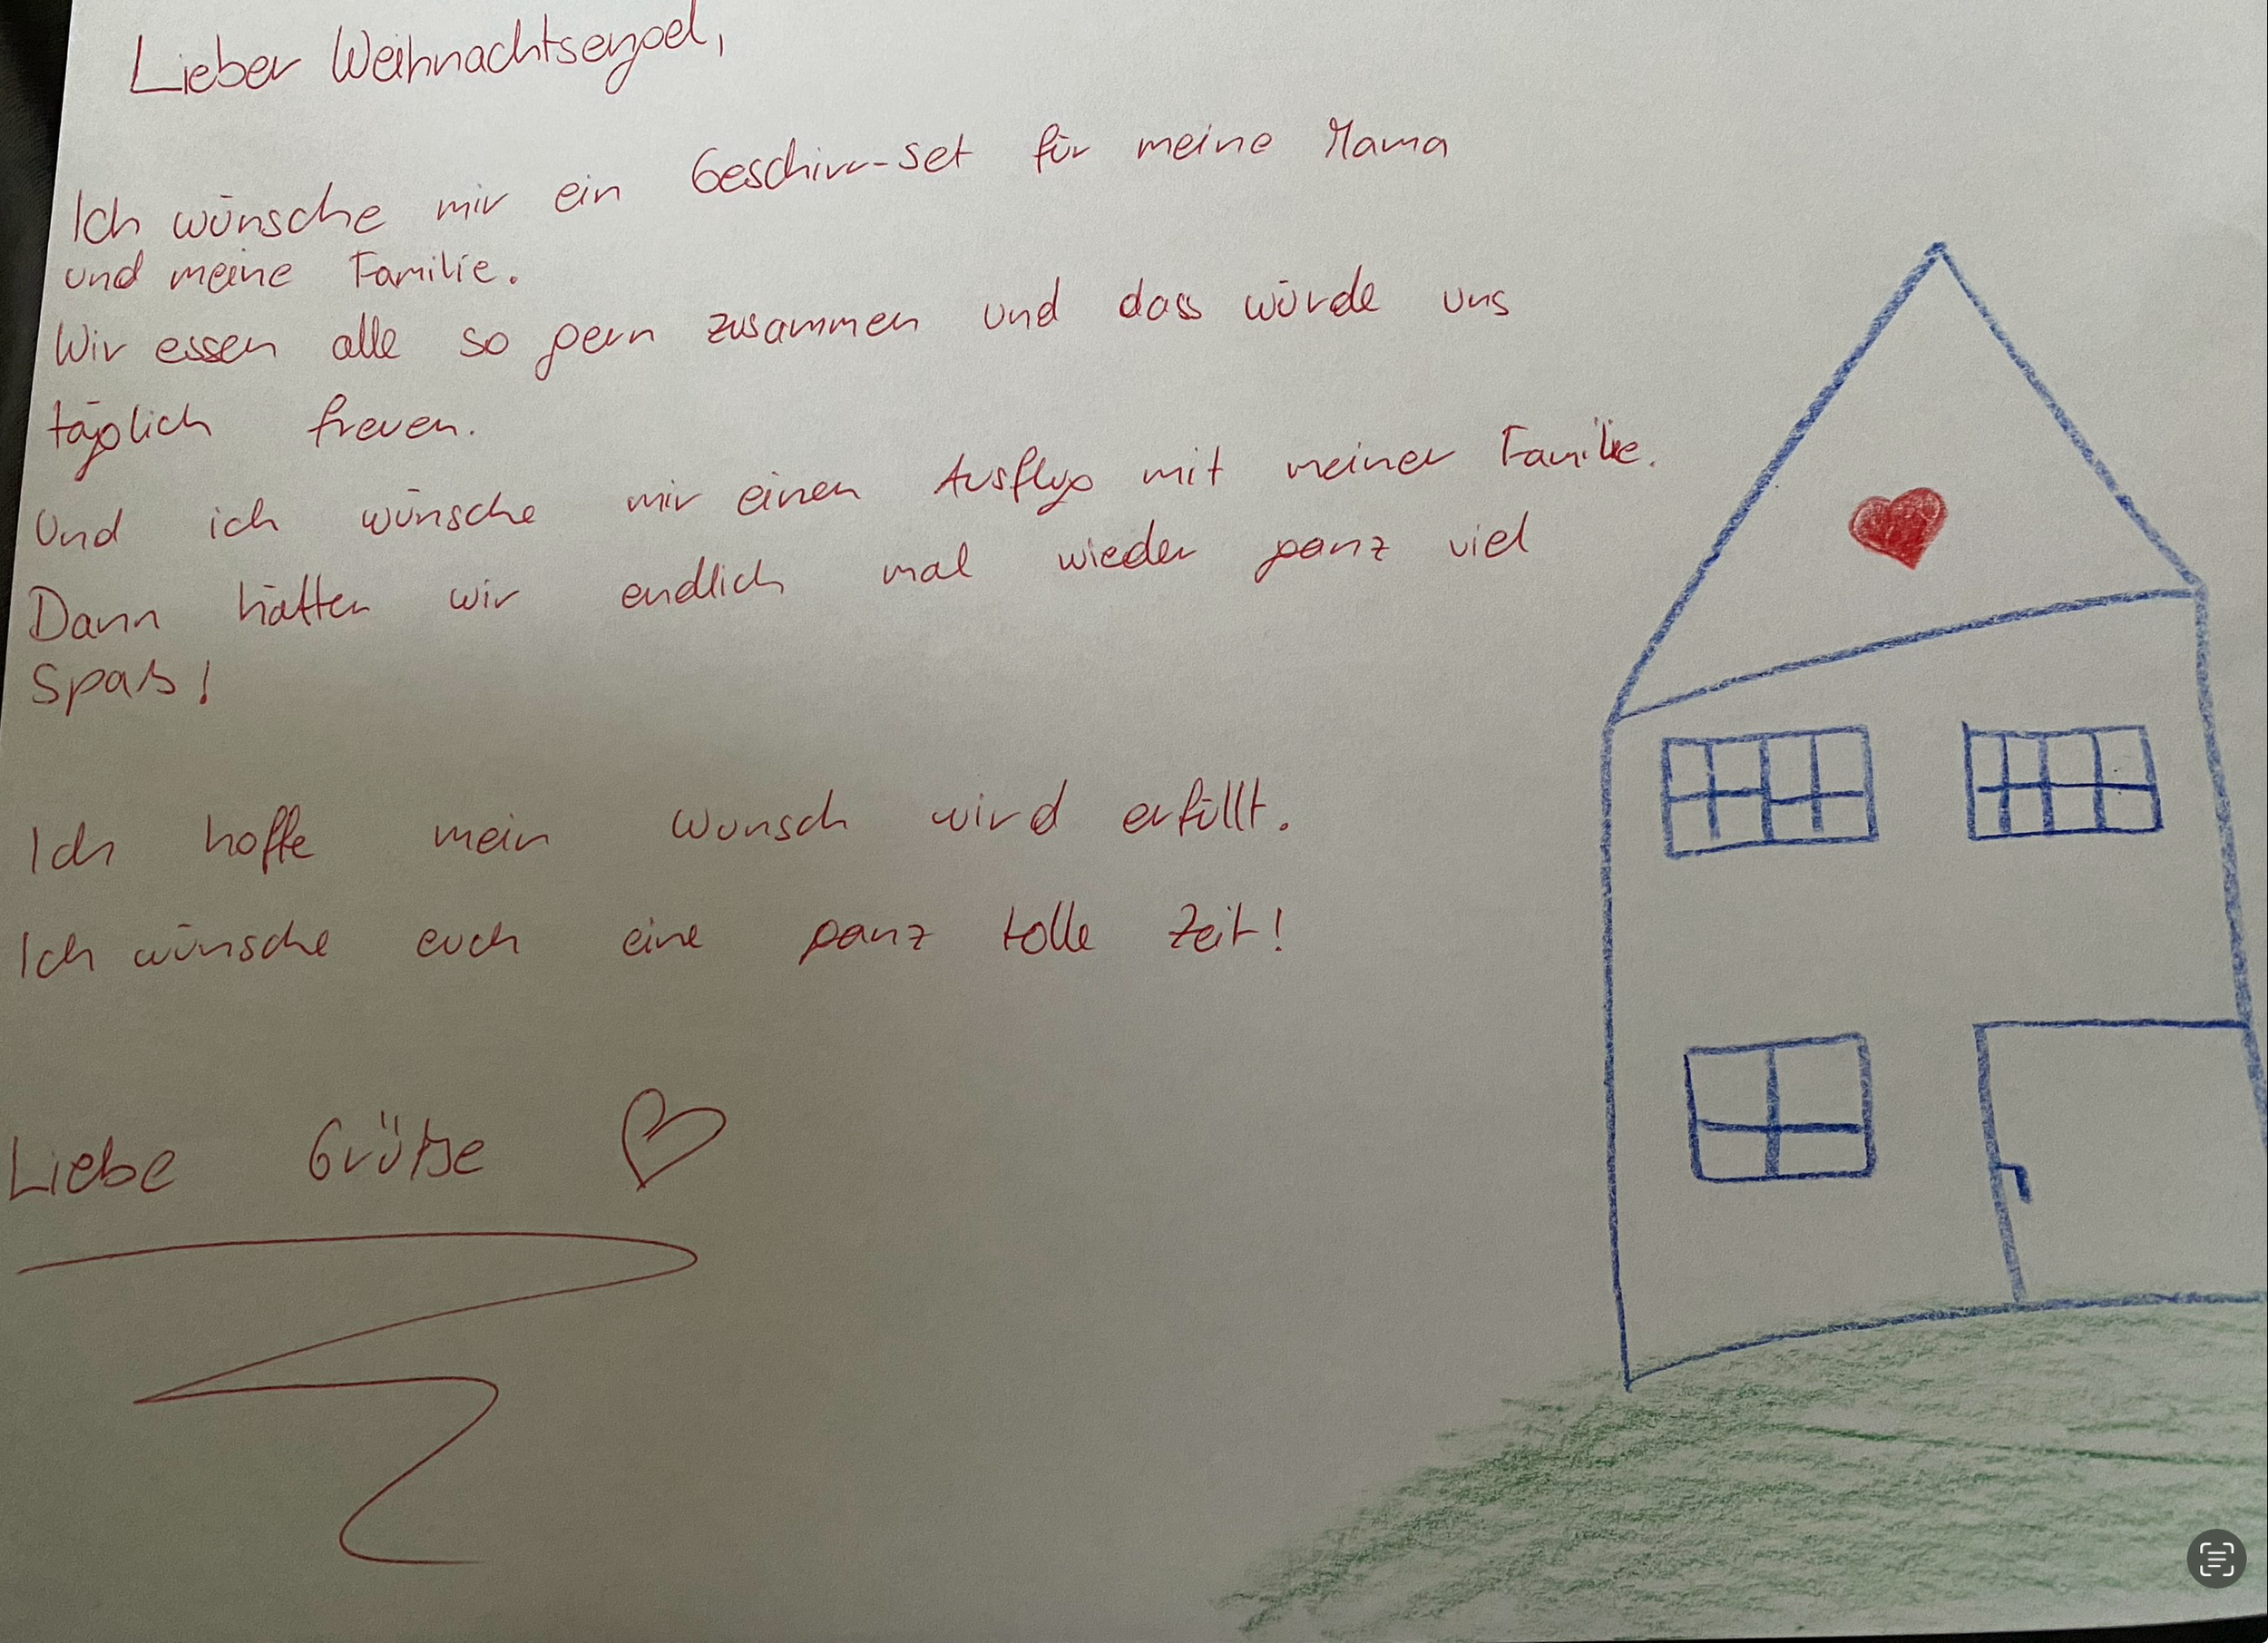 Lieber Weihnachtsengel,
Ich wünsche mir ein Geschirr-Set für meine Mama
und meine Familie.
Wir essen alle so gern zusammen und dass würde uns
täglich freuen.
Und ich wünsche mir einen Ausflug mit meiner Familie.
Dann hätten wir endlich mal wieder ganz viel
Spaß!
Ich hoffe mein Wunsch wird erfüllt.
Ich wünsche euch eine ganz tolle Zeit!
Liebe Grüße